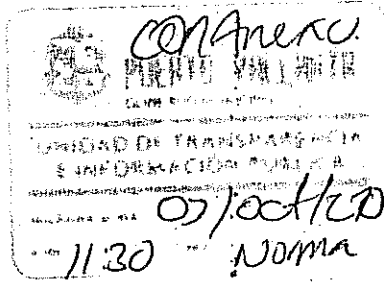 Con Anexo.
PUERTO VALLARTA
UNIDAD DE TRANSPARENCIA
E INFORMACIÓN PÚBLICA
07/oct/20
11:30 Norma